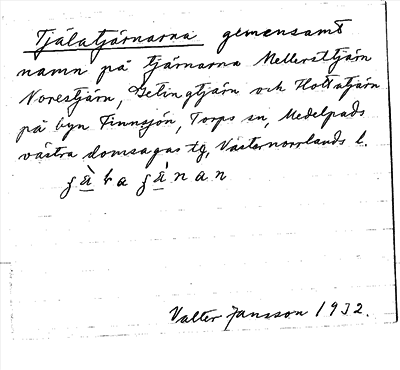 Tjälatjärnarna gemensamt
namn på tjärnarna Mellersttjärn
Norestjärn, Getingtjärn och
på byn Finnsjön, Torps sn, Medelpads
västra domsagas tg, Västernorrlands l.
Valter Jansson 1932.